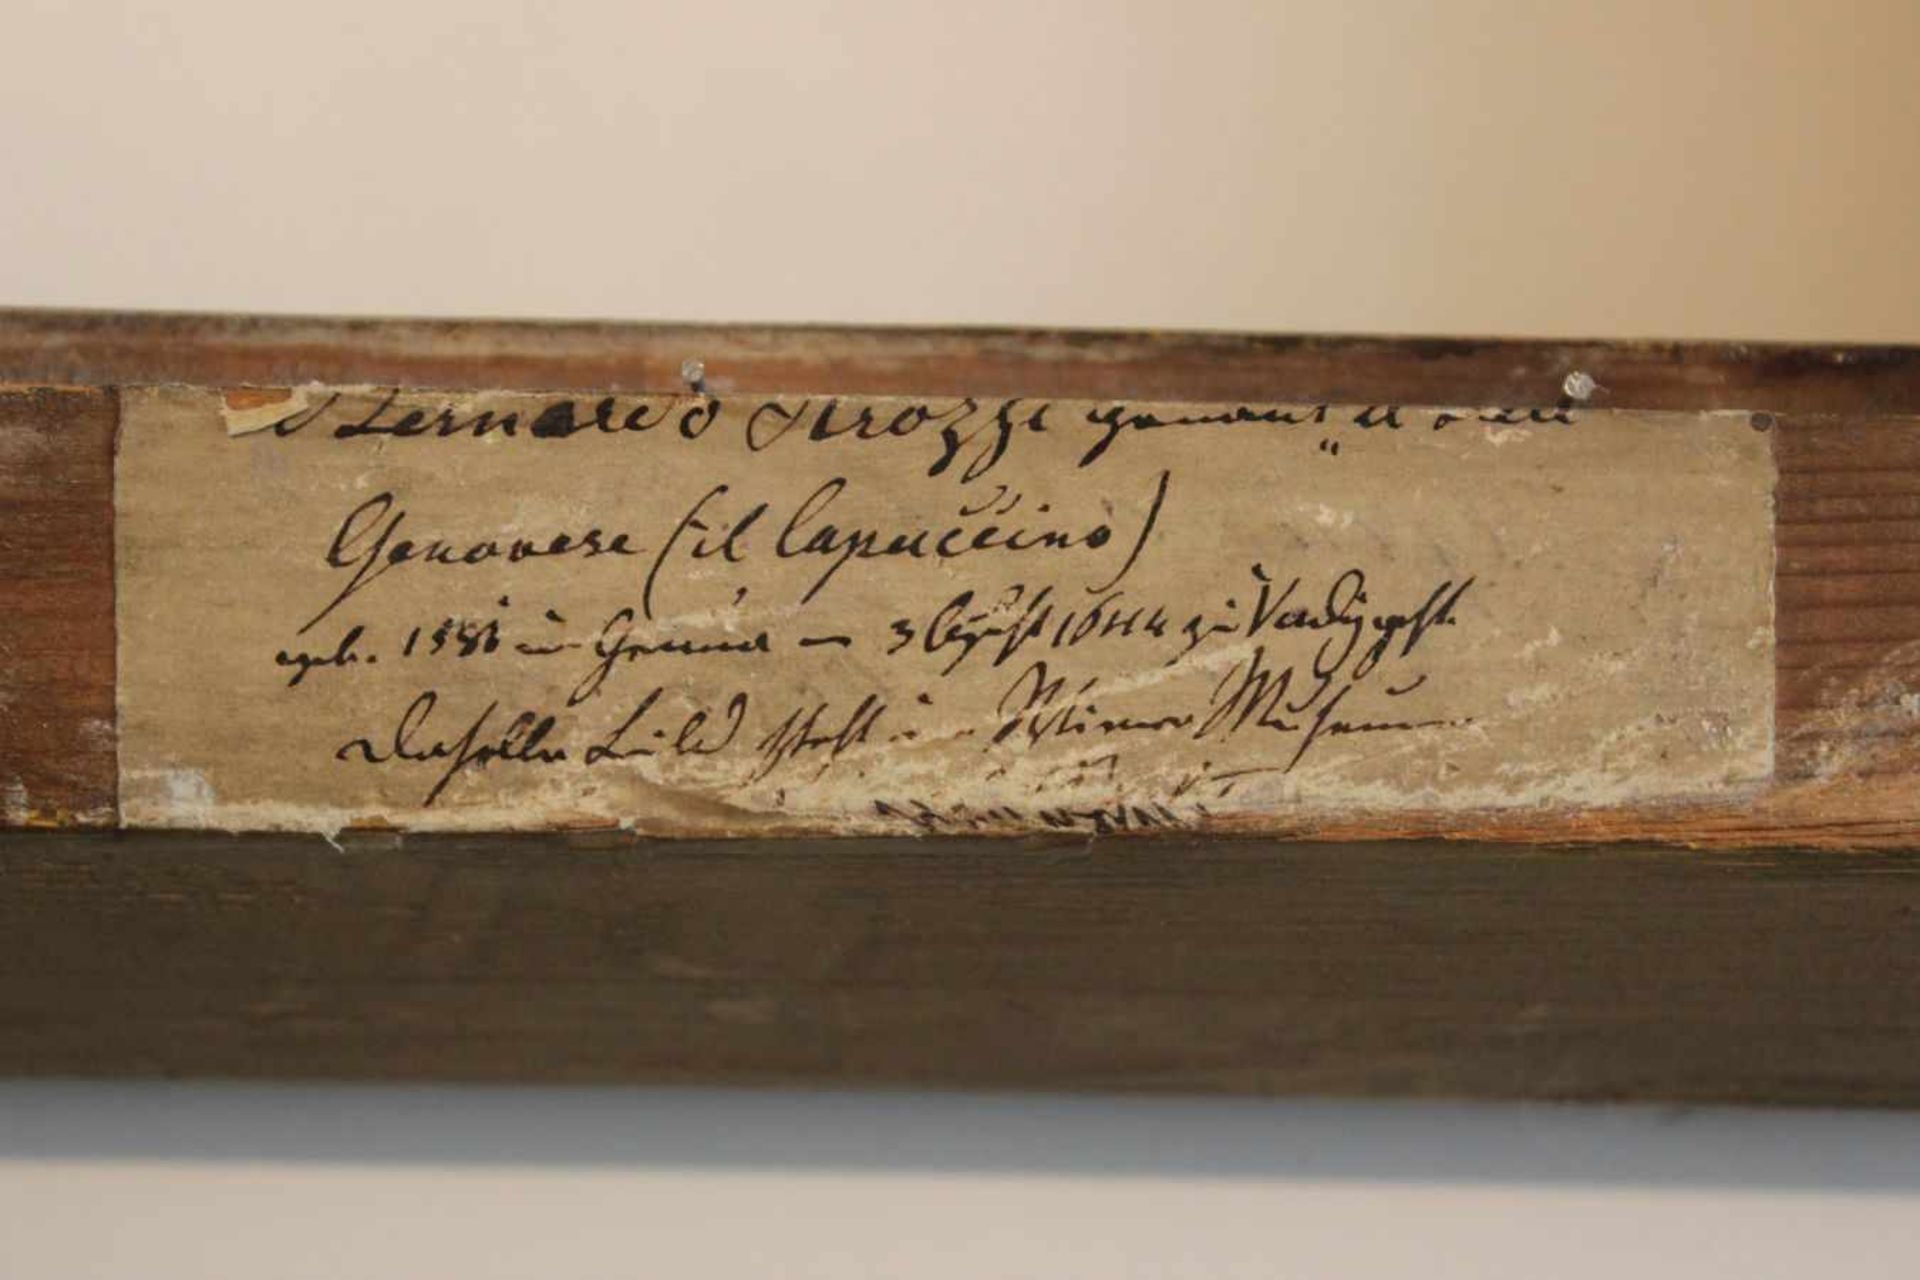 Bernardo Strozzi genannt il
Genovese (il Capuccino)
geb. 1581 in Genua — 3 August 1644 zu Venedig gest.
Dasselbe Bild steht im Wiener Museum